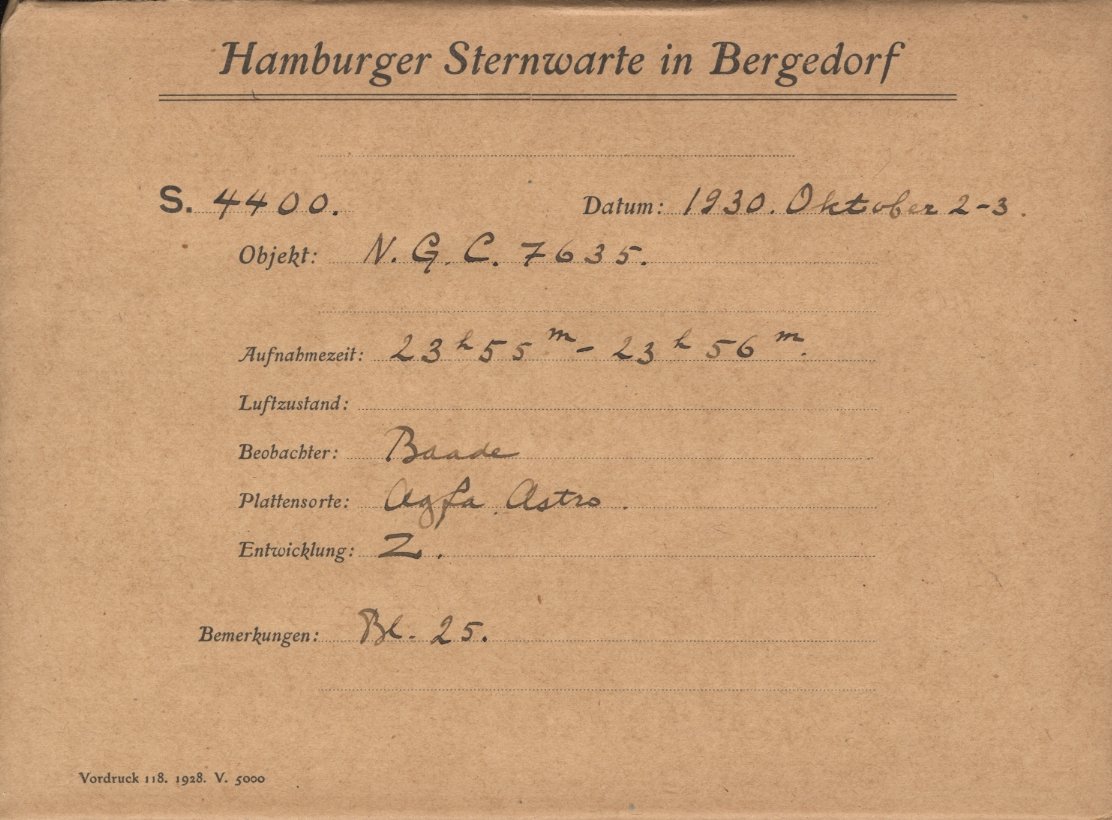 Hamburger Sternwarte in Bergedorf
S. 4400. Datum: 1930. Oktober 2-3.
Objekt: N. G. C. 7635.
Aufnahmezeit: 23 h 55 m - 23 h 56 m.
Luftzustand:
Beobachter: Baade
Plattensorte: Agfa Astro.
Entwicklung: Z.
Bemerkungen: Bl. 25.
Vordruck 118. 1928. V. 5000